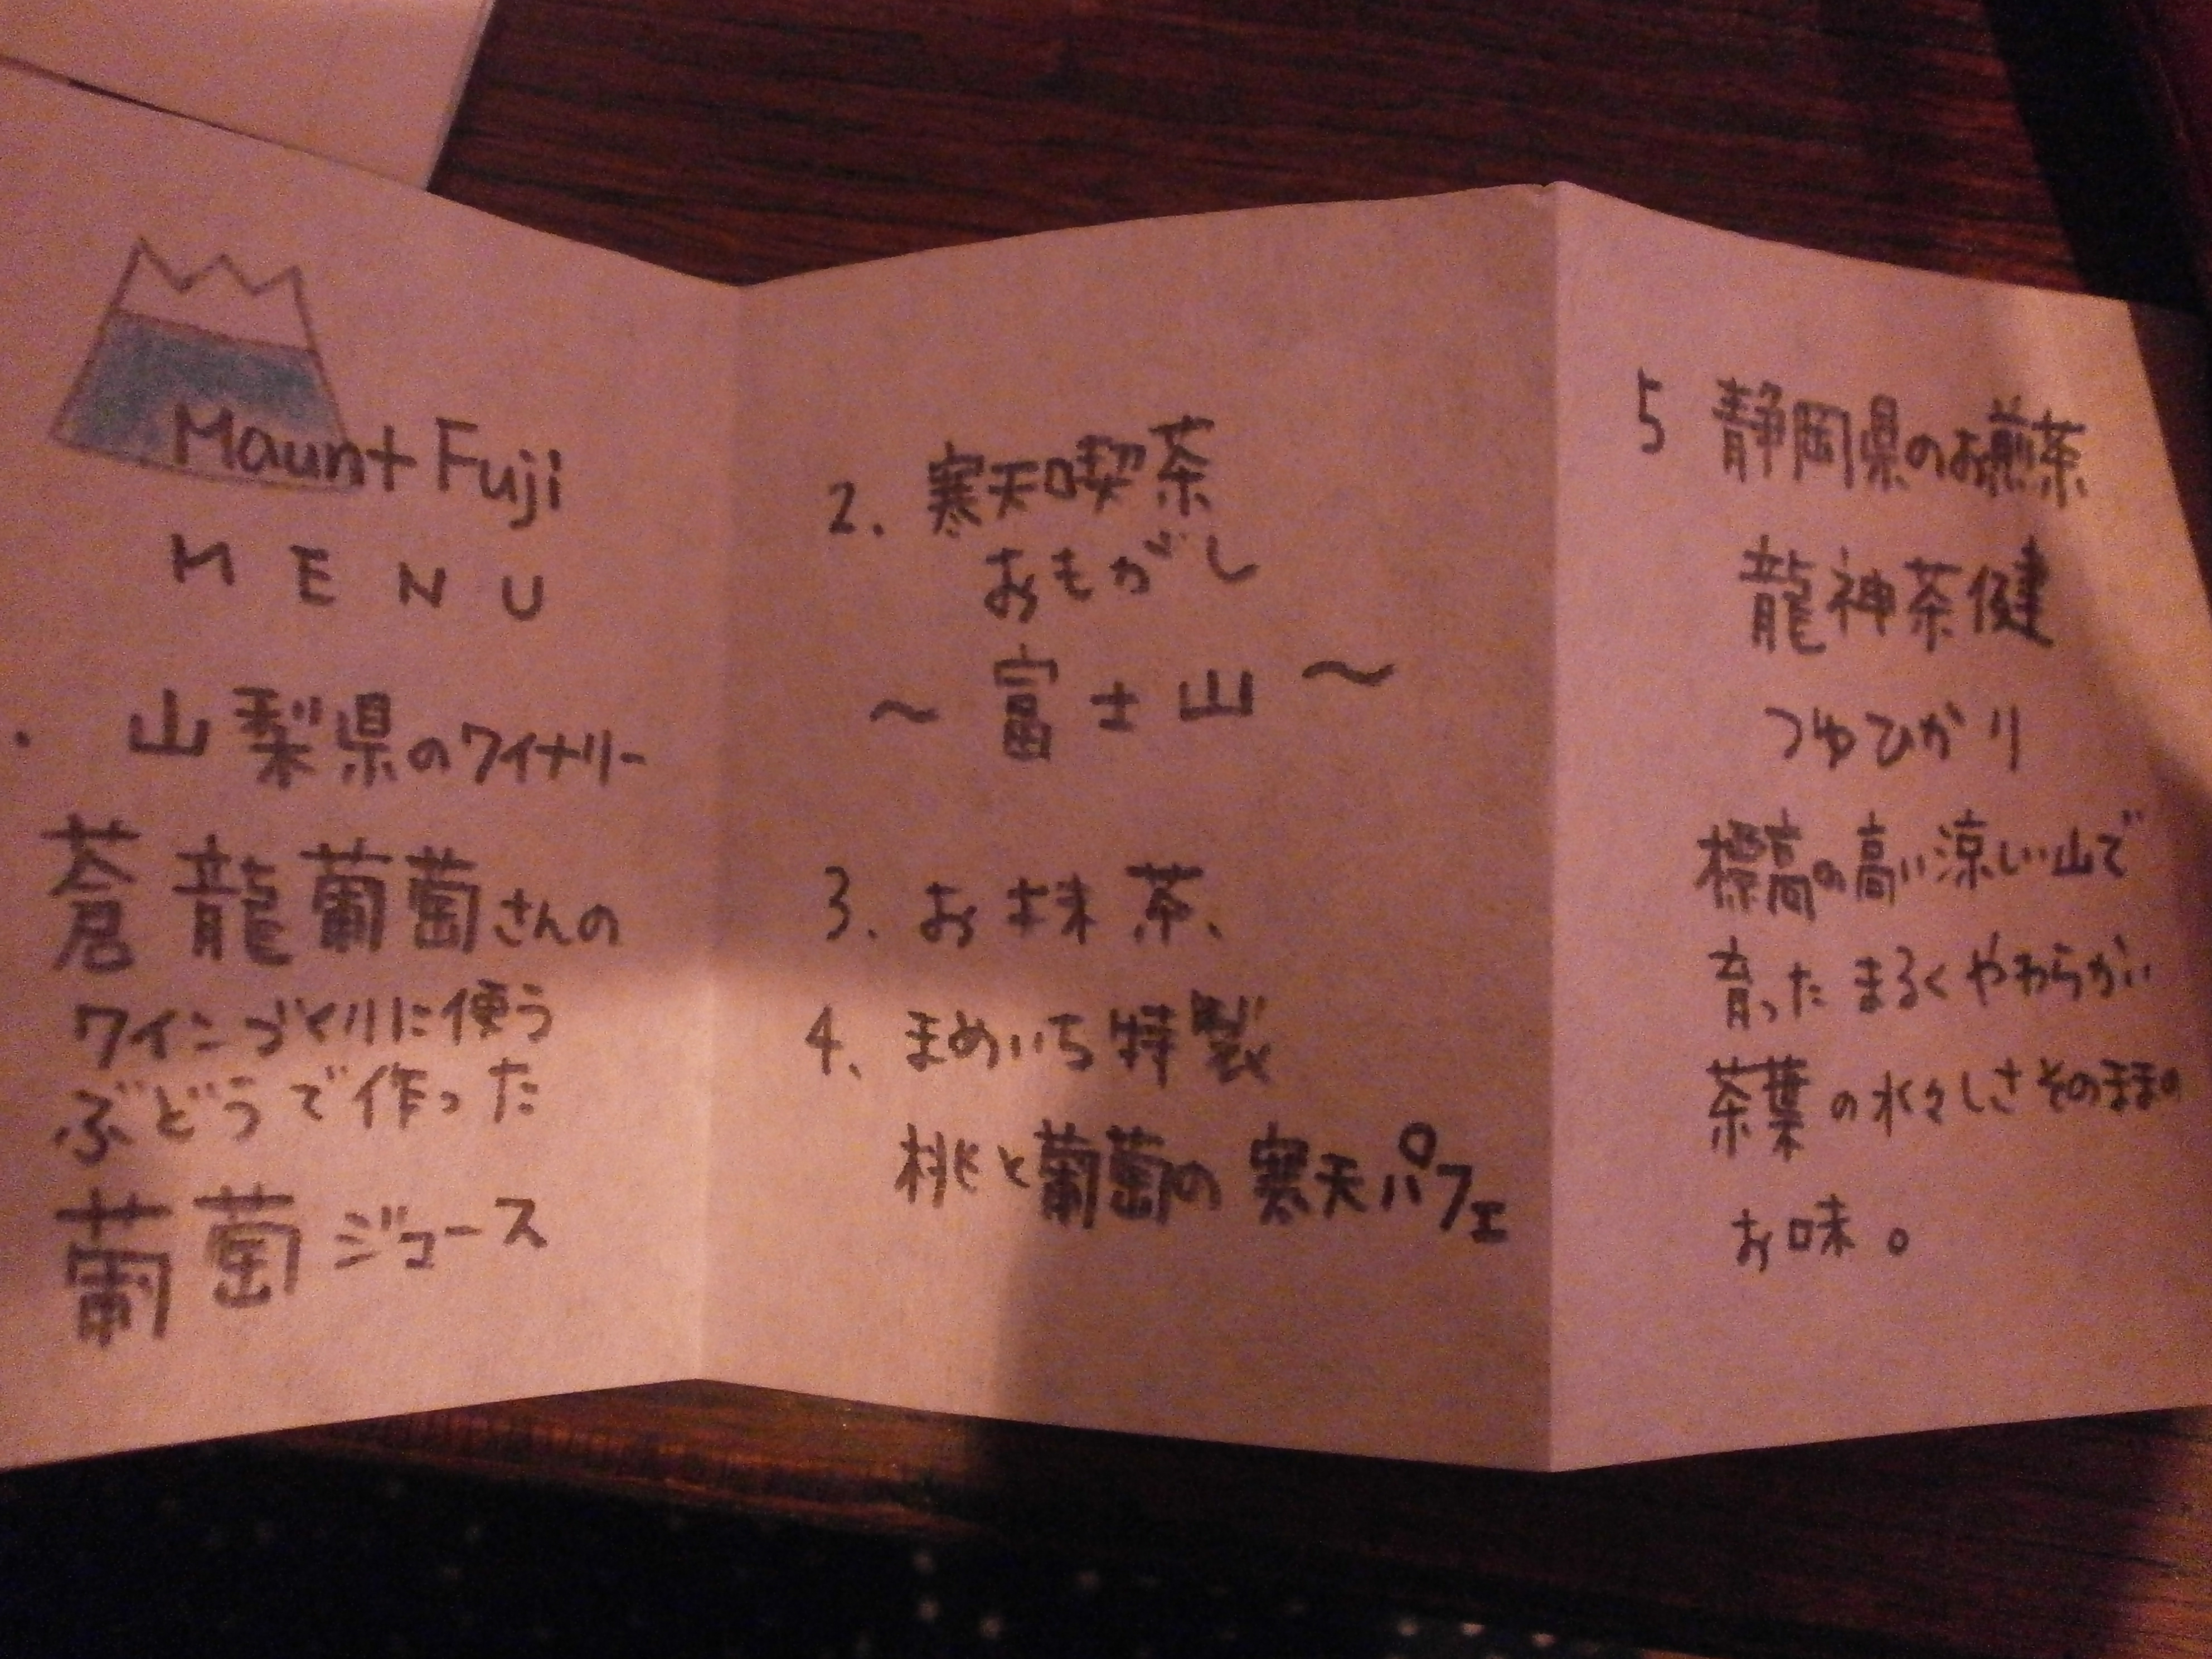 Maunt Fuji
MENU
. 山梨県のワイナリー
蒼龍葡萄さんの
ワインづくりに使う
ぶどうで作った
葡萄ジュース
2. 寒天喫茶
おもがし
〜富士山〜
3. お抹茶、
4、まめいち特製
桃と葡萄の寒天パフェ
5 静岡県のお煎茶
龍神茶健
つゆひかり
標高の高い涼しい山で
育ったまるくやわらかい
茶葉の水々しさそのままの
お味。